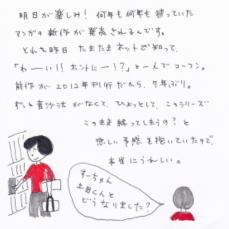 明日が楽しみ！何年も何年も待っていた
マンガの新作が発売されるんです。
それも昨日 たまたまネットで知って、
「わーい！！ホントにー！？」と一人でコーフン。
前作が2012年刊行だから、7年ぶり。
ずっと音沙汰がなくて、ひょっとして、このシリーズ
このまま終ってしまうの？と
悲しい予感を抱いていたので、
本当にうれしい。
すーちゃん
土田くんと
どうなりました？